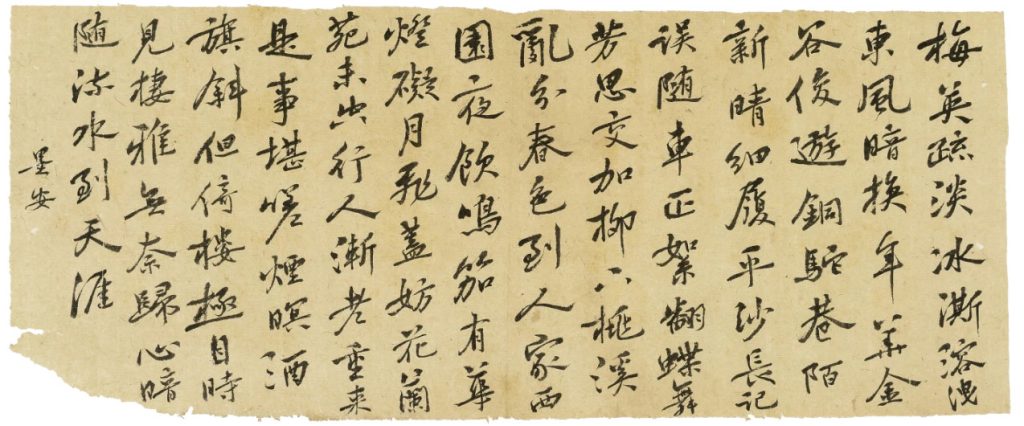 梅英疏淡冰澌溶洩
東風暗換年華金
谷俊遊銅駝巷陌
新晴細履平沙長記
誤随車正絮翻蝶舞
芳思交加柳下桃溪
亂分春色到人家西
園夜飲鳴笳有華
燈礙月飛蓋妨花蘭
苑未空行人漸老重来
是事堪嗟煙暝酒
旗斜但倚樓極目時
見棲雅無奈歸心暗
随流水到天涯
安